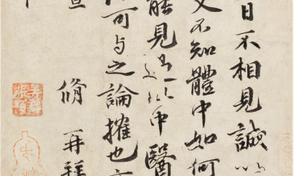 日不相見誠以
艾不知體中如何
能見過此中醫
可与之論搉也
宣
脩再拜